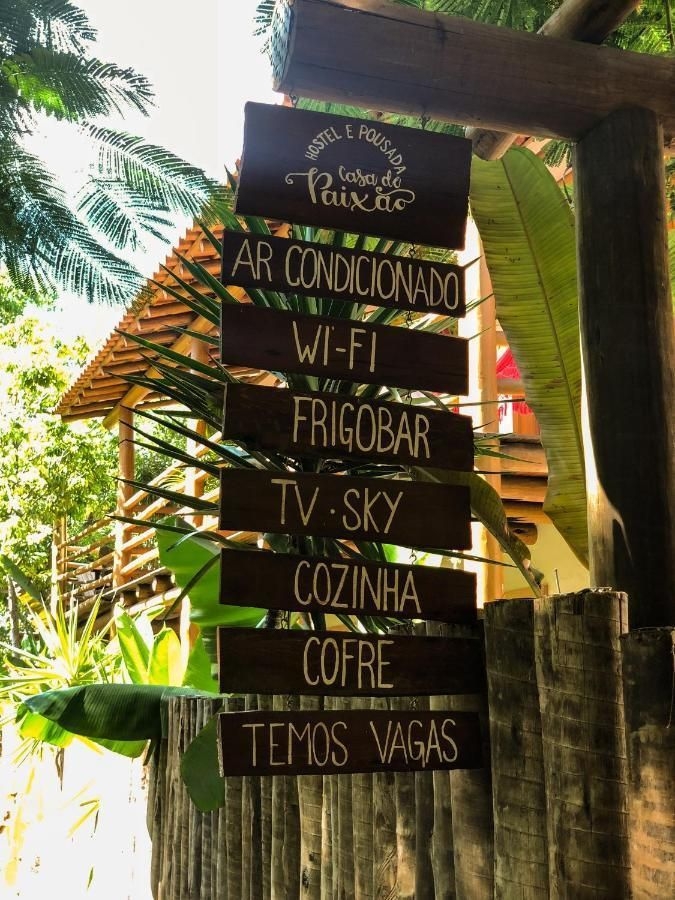 HOSTEL E POUSADA
Casa do
Paixão
AR CONDICIONADO
WI-FI
FRIGOBAR
TV · SKY
COZINHA
COFRE
TEMOS VAGAS